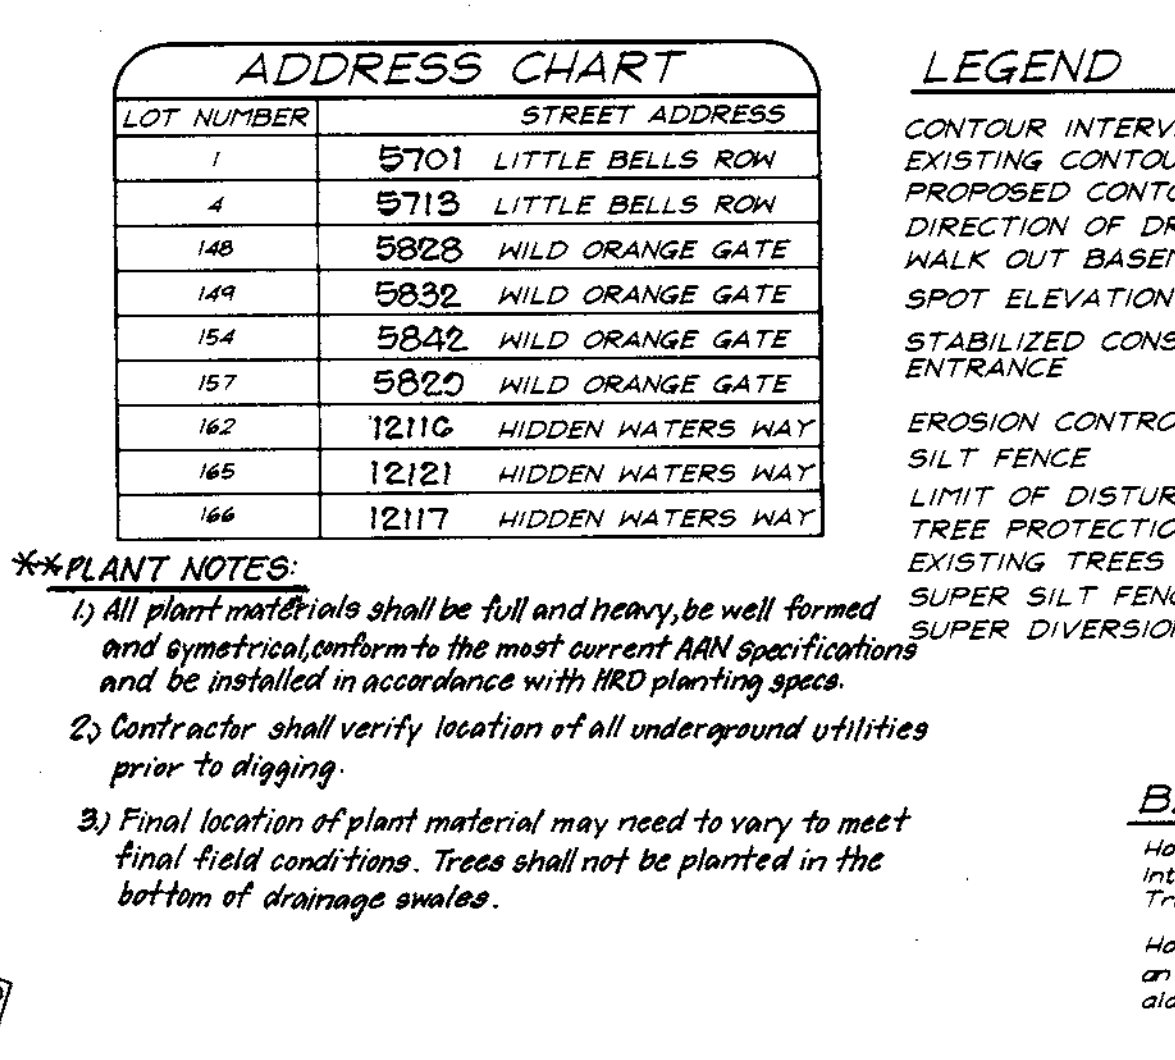 ADDRESS CHART
LOT NUMBER STREET ADDRESS
1 5701 LITTLE BELLS ROW
4 5713 LITTLE BELLS ROW
148 5828 WILD ORANGE GATE
149 5832 WILD ORANGE GATE
154 5842 WILD ORANGE GATE
157 WILD ORANGE GATE
162 12116 HIDDEN WATERS WAY
165 12121 HIDDEN WATERS WAY
166 12117 HIDDEN WATERS WAY
**PLANT NOTES:
1.) All plant materials shall be full and heavy, be well formed
and symetrical, conform to the most current AAN specifications
and be installed in accordance with HRD planting specs.
2.) Contractor shall verify location of all underground utilities
prior to digging.
3.) Final location of plant material may need to vary to meet
final field conditions. Trees shall not be planted in the
bottom of drainage swales.
LEGEND
CONTOUR INTERV
EXISTING CONTOU
PROPOSED CONTO
DIRECTION OF DR
WALK OUT BASEM
SPOT ELEVATION
STABILIZED CONS
ENTRANCE
EROSION CONTRO
SILT FENCE
LIMIT OF DISTUR
TREE PROTECTIO
EXISTING TREES
SUPER SILT FENC
SUPER DIVERSION
B
Ho
int
Tr
Ho
an
alo